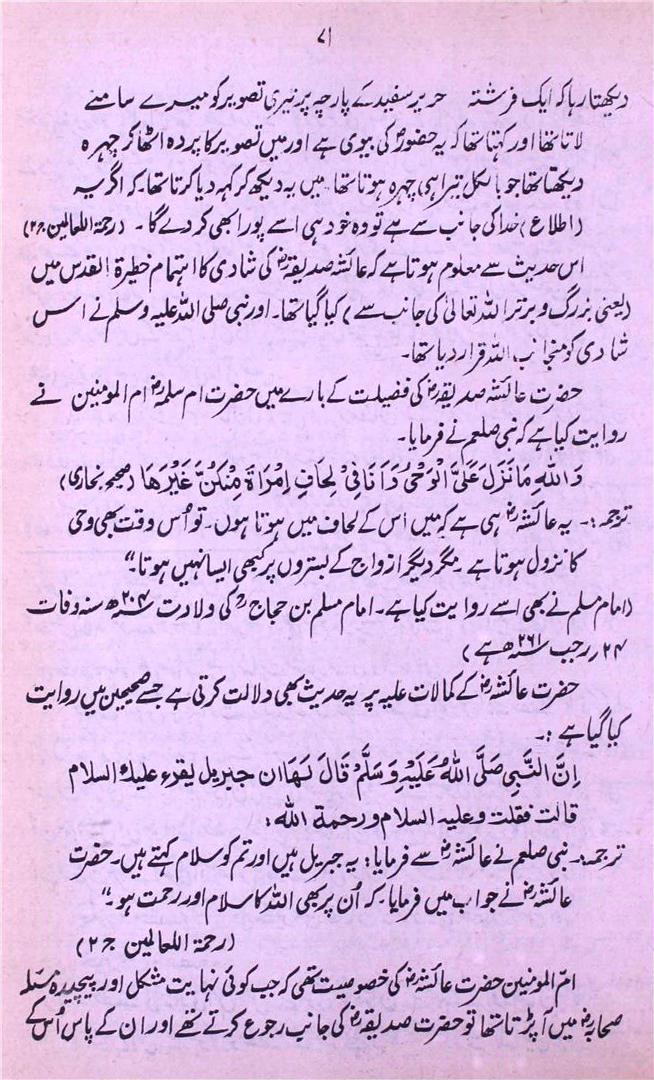 ۷۱
دیکھتا رہا کہ ایک فرشتہ حریر سفید کے پارچہ پر تیری تصویر کو میرے سامنے
لاتا تھا اور کہتا تھا کہ یہ حضورؐ کی بیوی ہے اور میں تصویر کا پردہ اٹھا کر چہرہ
دیکھتا تھا جو بالکل تیرا ہی چہرہ ہوتا تھا میں یہ دیکھ کر کہہ دیا کرتا تھا۔ کہ اگر یہ
(اطلاع) خدا کی جانب سے ہے تو وہ خود ہی اسے پورا بھی کر دے گا۔ (رحمۃ اللعالمین ج۲)
اس حدیث سے معلوم ہوتا ہے کہ عائشہ صدیقہؓ کی شادی کا اہتمام خطیرۃ القدس میں
(یعنی بزرگ و برتر اللہ تعالیٰ کی جانب سے) کیا گیا تھا۔ اور نبی صلی اللہ علیہ وسلم نے اس
شادی کو منجانب اللہ قرار دیا تھا۔
حضرت عائشہ صدیقہؓ کی فضیلت کے بارے میں حضرت ام سلمہؓ ام المومنین نے
روایت کیا ہے کہ نبی صلعم نے فرمایا۔
وَاللهِ مَا نَزَلَ عَلَیَّ الْوَحْیُ وَاَنَا فِیْ لِحَافِ اِمْرَاَةٍ مِنْکُنَّ غَیْرَهَا (صحیح بخاری)
ترجمہ:۔ یہ عائشہؓ ہی ہے کہ میں اس کے لحاف میں ہوتا ہوں۔ تو اُس وقت بھی وحی
کا نزول ہوتا ہے۔ مگر دیگر ازواج کے بستروں پر کبھی ایسا نہیں ہوتا۔“
(امام مسلم نے بھی اسے روایت کیا ہے۔ امام مسلم بن حجاجؒ کی ولادت ۲۰۴ھ سنہ وفات
۲۴ رجب ۲۶۱ھ ہے)
حضرت عائشہؓ کے کمالات علیہ پر یہ حدیث بھی دلالت کرتی ہے جسے صحیحین میں روایت
کیا گیا ہے :۔
اِنَّ النَّبِی صَلَّی اللهُ عَلَیْهِ وَسَلَّمْ قَالَ لَهَا ان جبریل یقرء علیك السلام
قالت فقلت وعلیه السلام ورحمة الله:
ترجمہ:۔ نبی صلعم نے عائشہؓ سے فرمایا: یہ جبریل ہیں اور تم کو سلام کہتے ہیں۔ حضرت
عائشہؓ نے جواب میں فرمایا۔ کہ اُن پر بھی اللہ کا سلام اور رحمت ہو۔“
(رحمۃ اللعالمین ج۲)
امّ المومنین حضرت عائشہؓ کی خصوصیت تھی کہ جب کوئی نہایت مشکل اور پیچیدہ مسئلہ
صحابہؓ میں آ پڑتا تھا تو حضرت صدیقہؓ کی جانب رجوع کرتے تھے اور ان کے پاس اُس کے